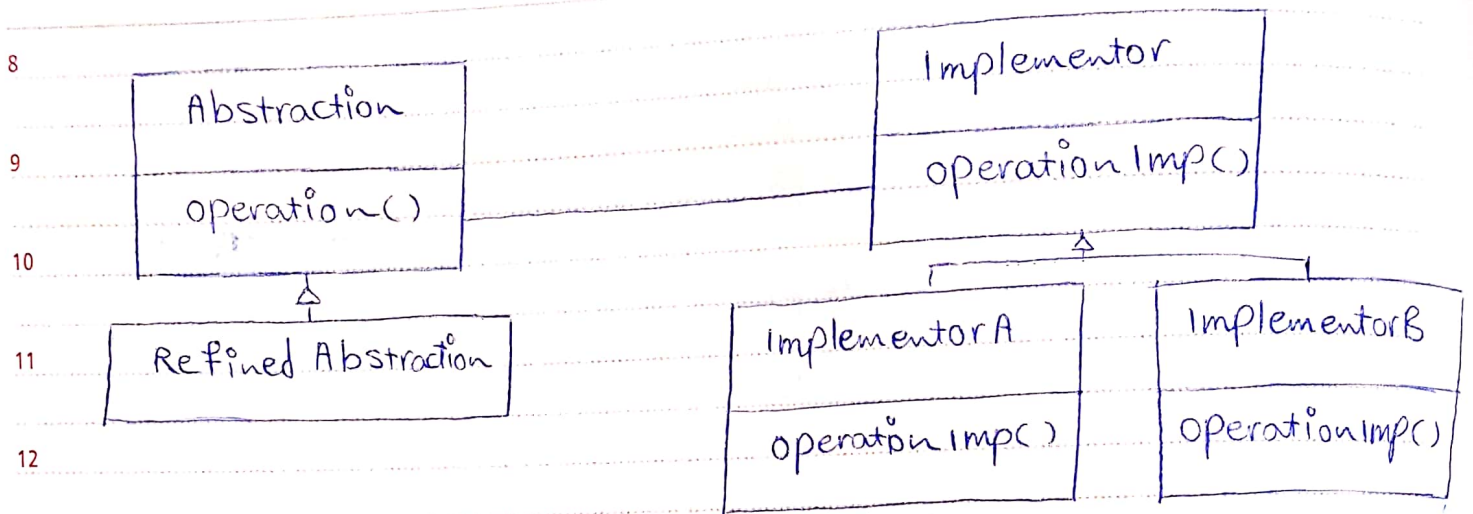 8
Abstraction
operation()
9
10
Refined Abstraction
11
12
Implementor
operationImp()
ImplementorA
operationImp()
ImplementorB
operationImp()